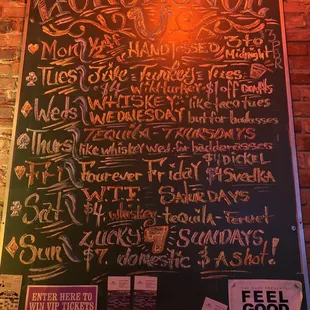 Mon ½ off HANDJESSED 3 to Midnight
Tues Five Turkeys Tues
$4 Wild Turkey $1 off
Weds WHISKEY: like taco tues
WEDNESDAY but for badasses
Thurs TEQUILA - THURSDAYS
like whiskey wes. for badder asses
Fri Fourever Friday $4 DICKEL
$4 Svedka
Sat W.T.F. SATURDAYS
$4 whiskey - tequila - fernet
Sun LUCKY 7 SUNDAYS
$7. domestic & A shot!
ENTER HERE TO
WIN VIP TICKETS
FEEL
GOOD